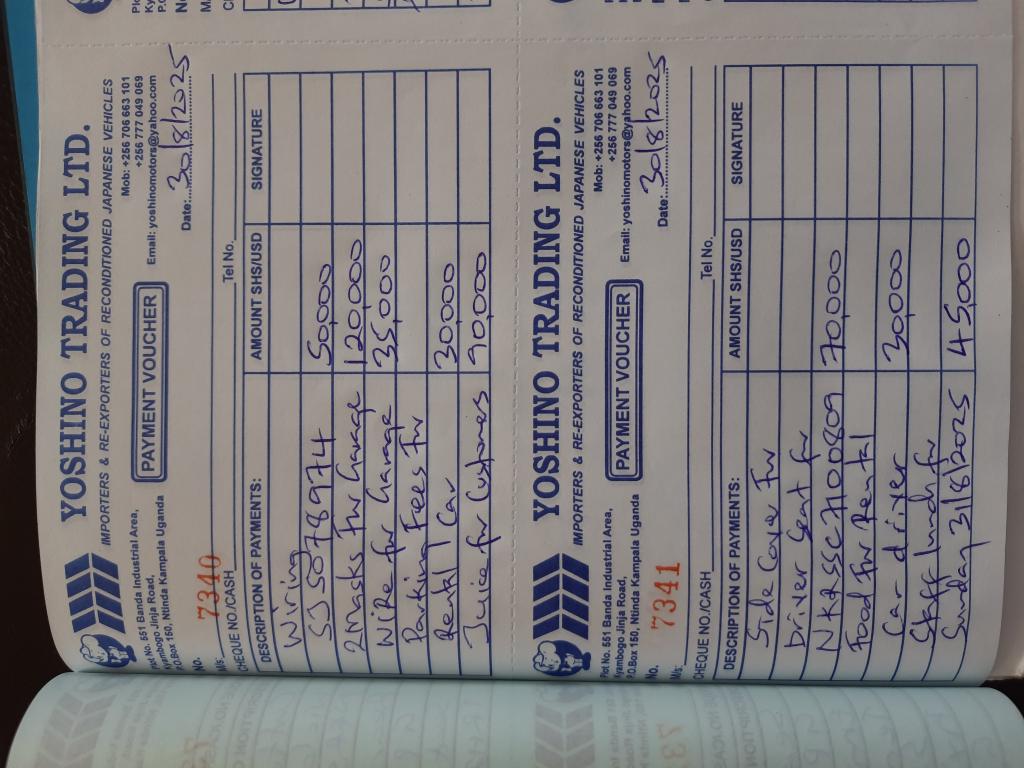 YOSHINO TRADING LTD.
IMPORTERS & RE-EXPORTERS OF RECONDITIONED JAPANESE VEHICLES
Plot No. 651 Banda Industrial Area,
Kyambogo Jinja Road,
P.O.Box 150, Ntinda Kampala Uganda
PAYMENT VOUCHER
Mob: +256 706 663 101
+256 777 049 069
Email: yoshinomotors@yahoo.com
No. 7340
Date: 30/8/2025
M/s. Tel No.
CHEQUE NO./CASH
DESCRIPTION OF PAYMENTS: AMOUNT SHS/USD SIGNATURE
Wiring
S35078974 50,000
2 Masks For Garage 120,000
Wire for Garage 35,000
Parking Fees For
Rental Car 30000
Juice for Customers 90,000
YOSHINO TRADING LTD.
IMPORTERS & RE-EXPORTERS OF RECONDITIONED JAPANESE VEHICLES
Plot No. 651 Banda Industrial Area,
Kyambogo Jinja Road,
P.O.Box 150, Ntinda Kampala Uganda
PAYMENT VOUCHER
Mob: +256 706 663 101
+256 777 049 069
Email: yoshinomotors@yahoo.com
No. 7341
Date: 30/8/2025
M/s. Tel No.
CHEQUE NO./CASH
DESCRIPTION OF PAYMENTS: AMOUNT SHS/USD SIGNATURE
Side Cover For
Driver Seat for
NKR 70,000
Food for Rental
Car driver 30,000
Staff lunch for
Sunday 31/8/2025 45,000